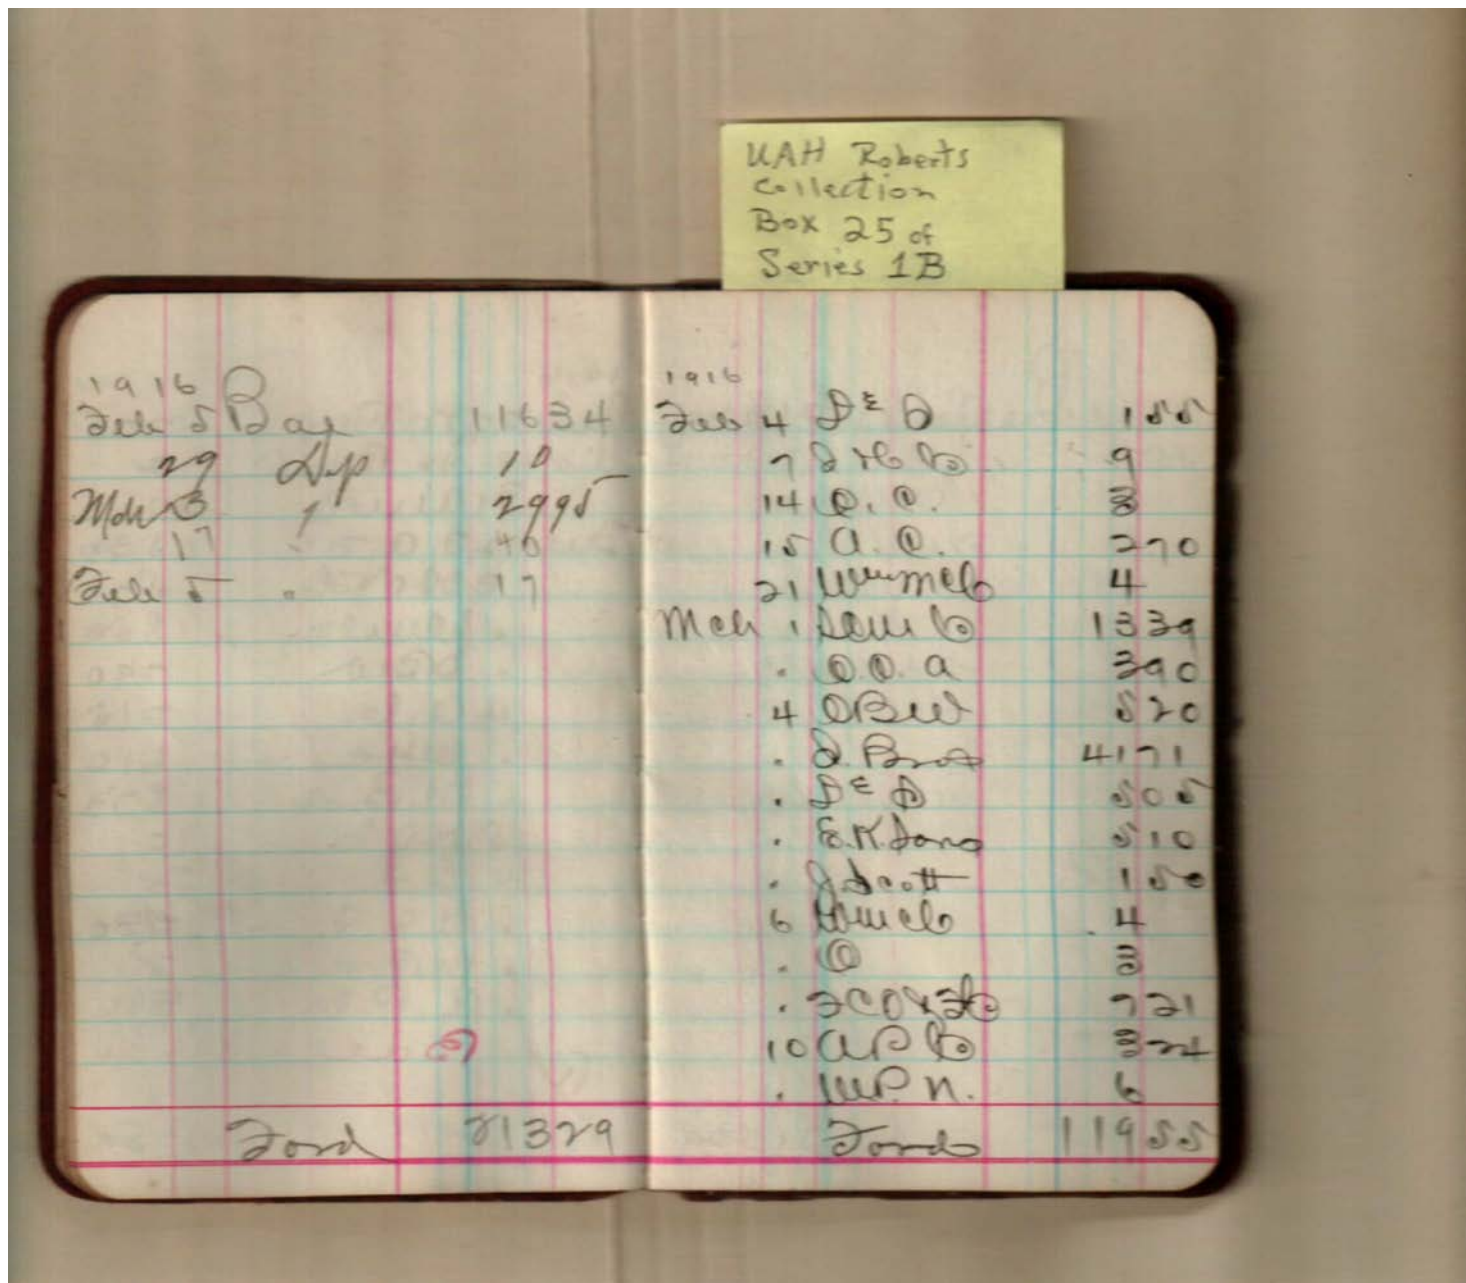 UAH Roberts
Collection
Box 25 of
Series 1B
1916
Feb 5 Bal 11634
29 Dep 10
Mch 3 " 2995
17 " 40
Feb 5 " 17
Ford 21329
1916
Feb 4 D & D 155
7 9
14 O. C. 3
15 A. C. 270
21 4
Mch 1 1339
. O. O. A 390
4 OBW 520
. D. Bros 4171
. D & D 505
. E. K. Sons 510
. J Scott 150
6 4
. O 3
. 721
10 APCo 324
. W.P. N. 6
Ford 11955